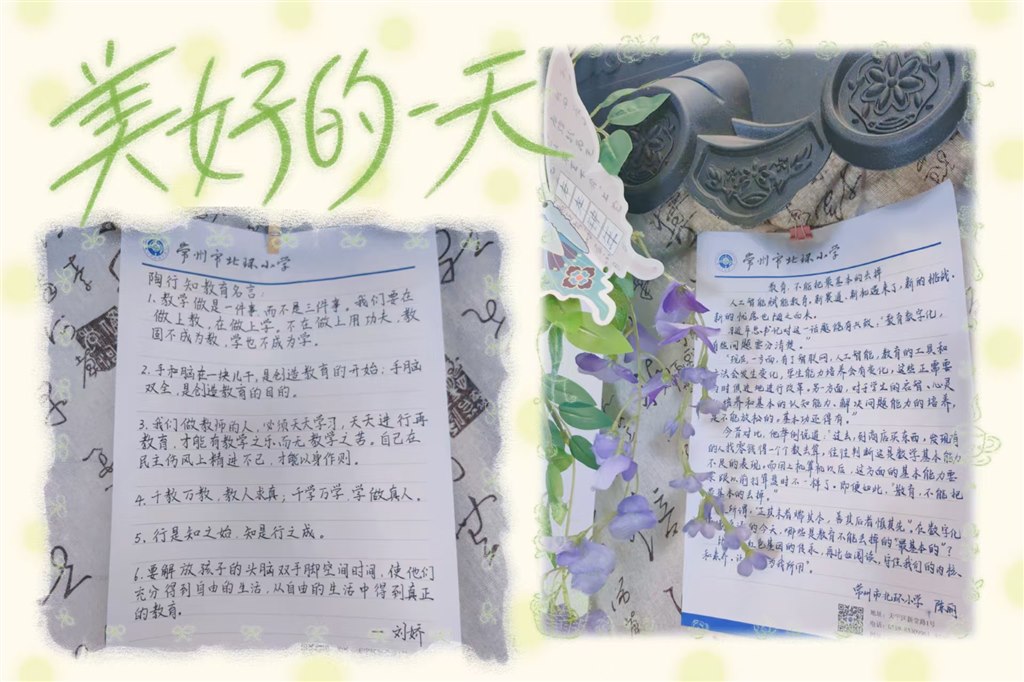 美好的一天
常州市北环小学
陶行知教育名言:
1.教学做是一件事,而不是三件事。我们要在
做上教,在做上学。不在做上用功夫,教
固不成为教,学也不成为学。
2.手和脑在一块儿干,是创造教育的开始;手脑
双全,是创造教育的目的。
3.我们做教师的人,必须天天学习,天天进行再
教育,才能有教学之乐而无教学之苦。自己在
民主作风上精进不已,才能以身作则。
4.千教万教,教人求真;千学万学,学做真人。
5.行是知之始,知是行之成。
6.要解放孩子的头脑双手脚空间时间,使他们
充分得到自由的生活,从自由的生活中得到真正
的教育.
— 刘娇
常州市北环小学
教育,不能把最基本的丢掉
人工智能赋能教育,新赛道、新机遇来了,新的挑战、
新的忧虑也随之而来。
书记对这一话题饶有兴致:“教育数字化,
问题要分清楚。”
“现在,一方面,有了智联网,人工智能,教育的工具和
法会发生变化,学生能力培养会有变化,这些正需要
时俱进地进行改革。另一方面,对于学生的启智、心灵
培养和基本的认知能力、解决问题能力的培养,
是不能放松的。基本功还得有。”
今昔对比,他举例说道:“过去,到商店买东西,发现有
的人找零钱得一个个数去算,往往判断这是数学基本能力
不足的表现。而用上和算机以后,这方面的基本能力要
跟以用打算盘时不一样了。即便如此,“教育,不能把
最基本的丢掉。”
所谓,“正其末者端其本,善其后者慎其先”在数字化
的今天,哪些是教育不能丢掉的“最基本的”?
红色基因的传承,再活如阅读,守住我们的内核、
和素养,
为我所用”。
常州市北环小学 陈
地址:天宁区新堂路1号
电话: